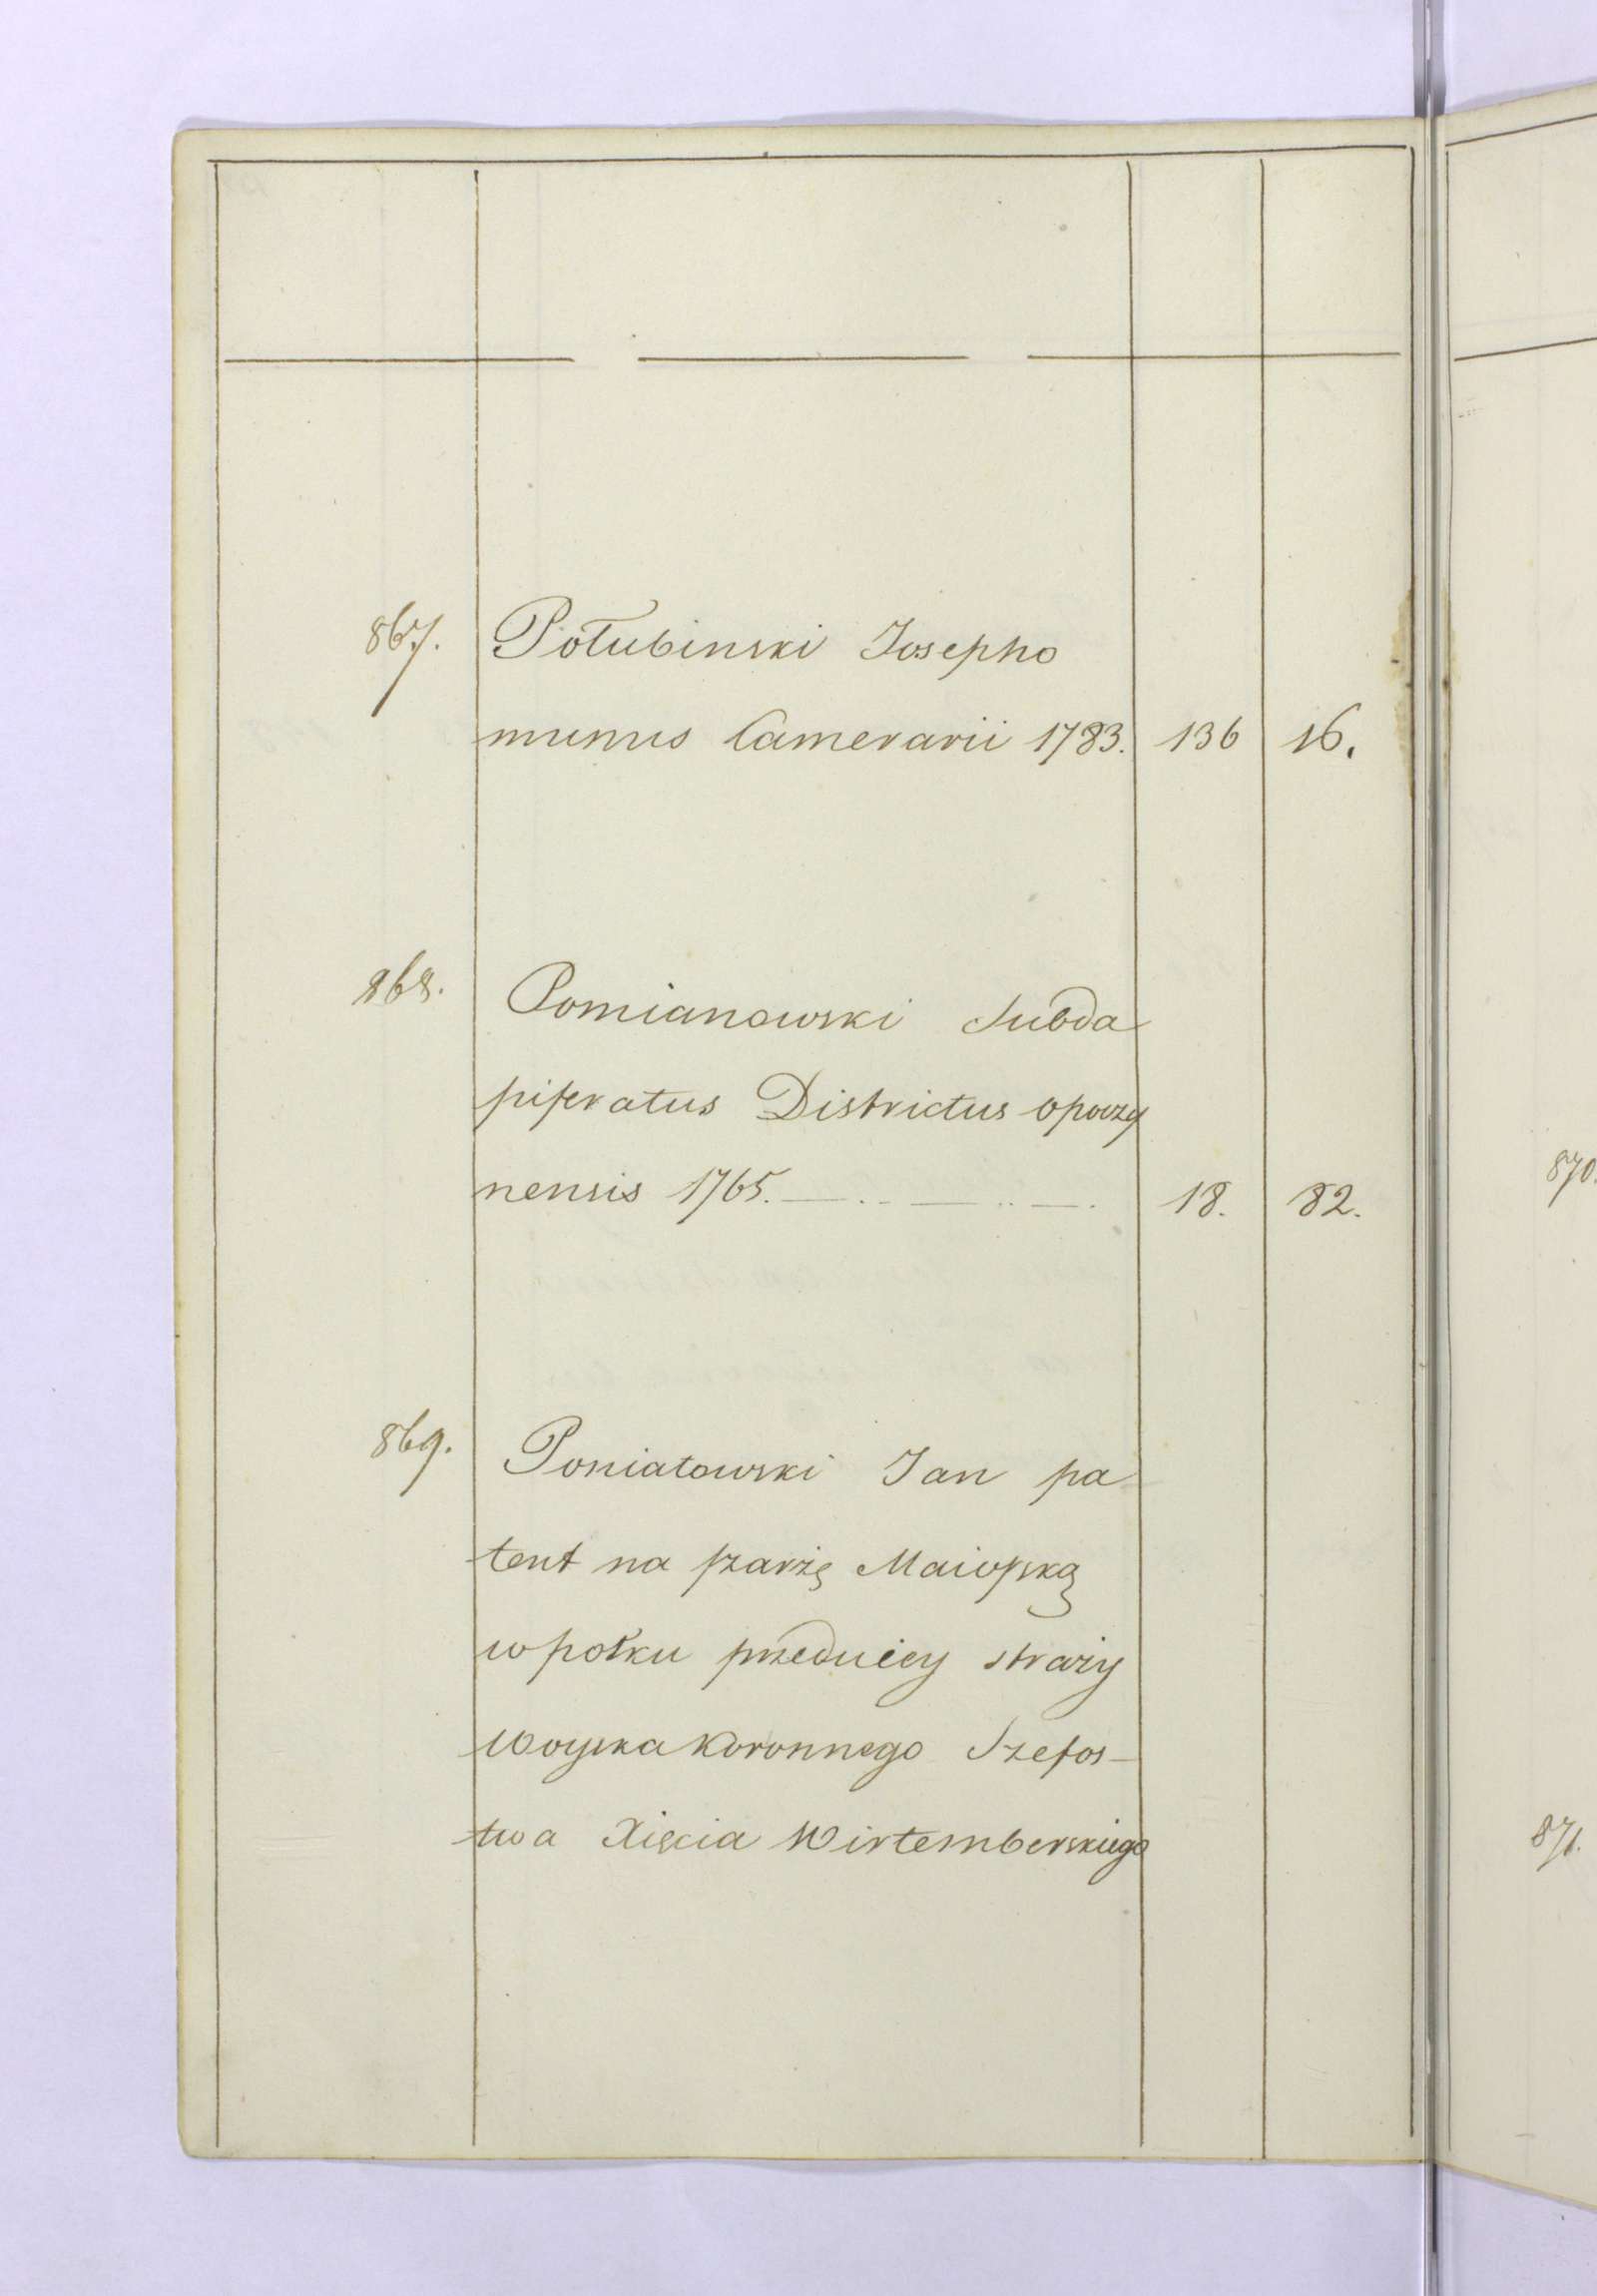 867. Połubinski Josepho
munus Camerarii 1783. 136 16.
868. Pomianowski Subda
piferatus Districtus opoczy
nensis 1765. — .. — .. — . 18. 82.
869. Poniatowski Jan pa
tent na szarżę Maiorską
w połku przedniey straży
Woyska Koronnego Szefos-
twa Xięcia Wirtemberskiego
870.
871.